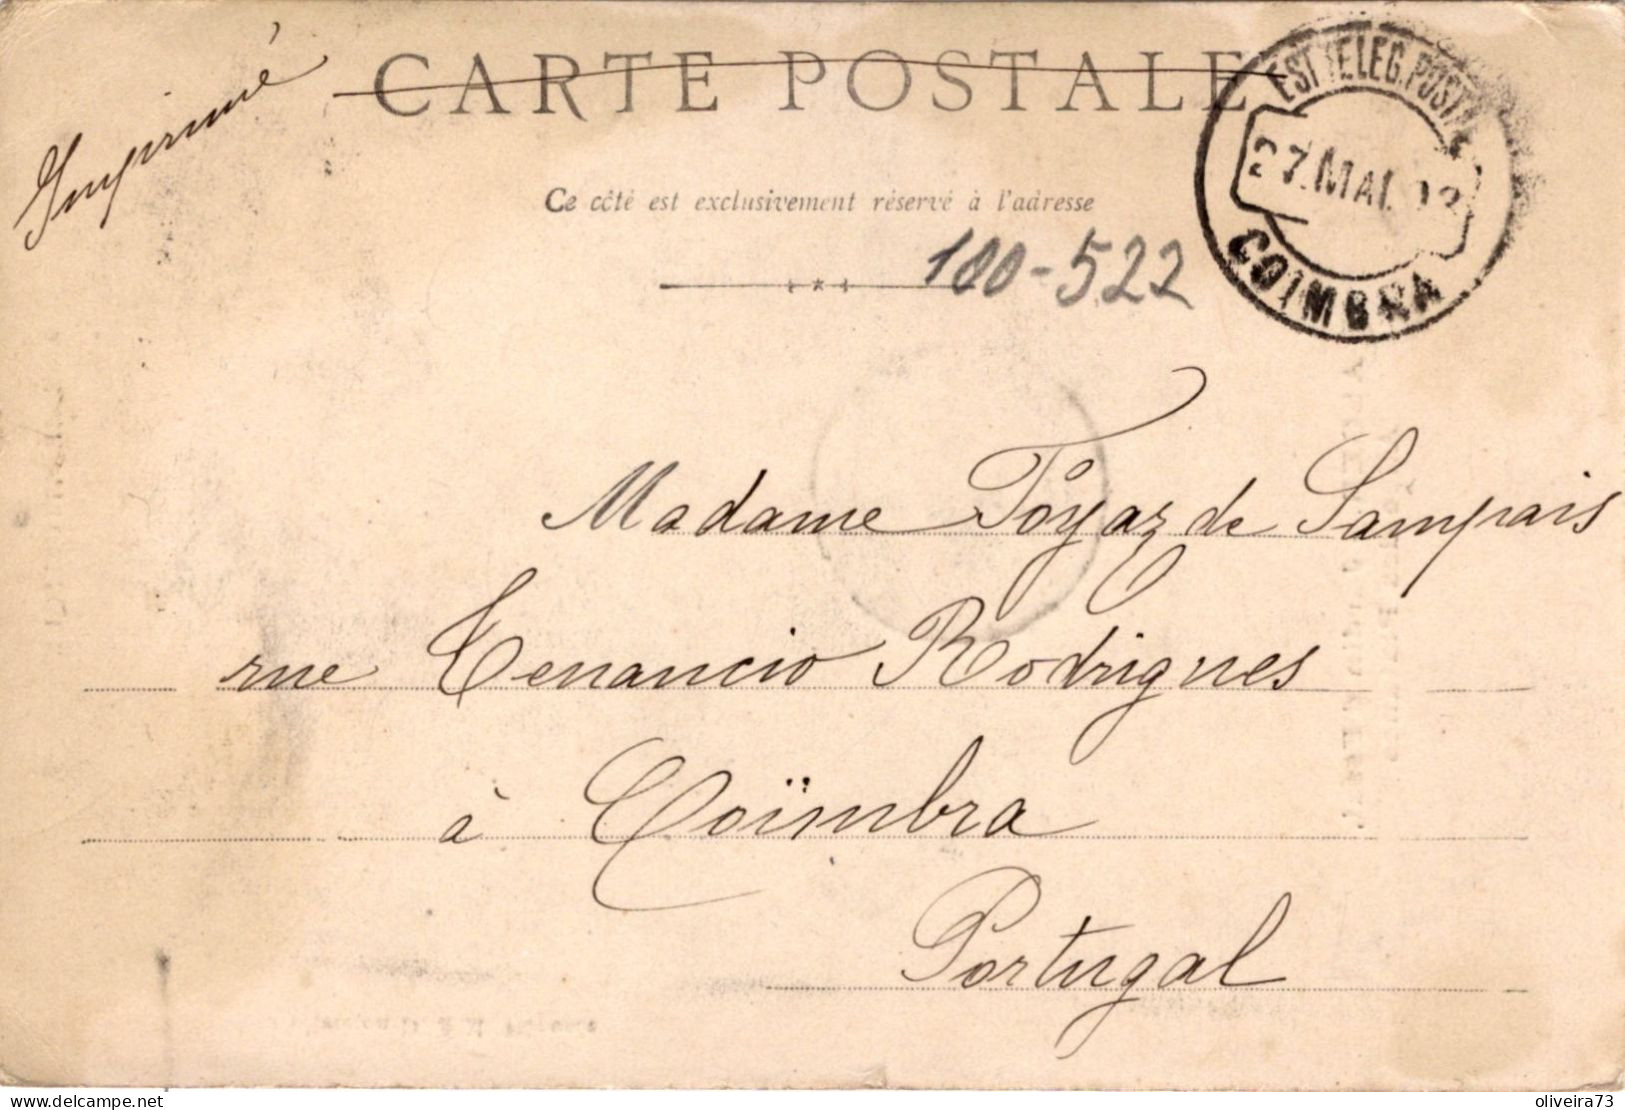 Imprimé
CARTE POSTALE
EST. TELEG. POSTAL
27. MAI.
COIMBRA
Ce côté est exclusivement réservé à l'adresse
100-522
Madame Tóyaz de Sampais
rue Venancio Rodrigues
à Coïmbra
Portugal
oliveira73